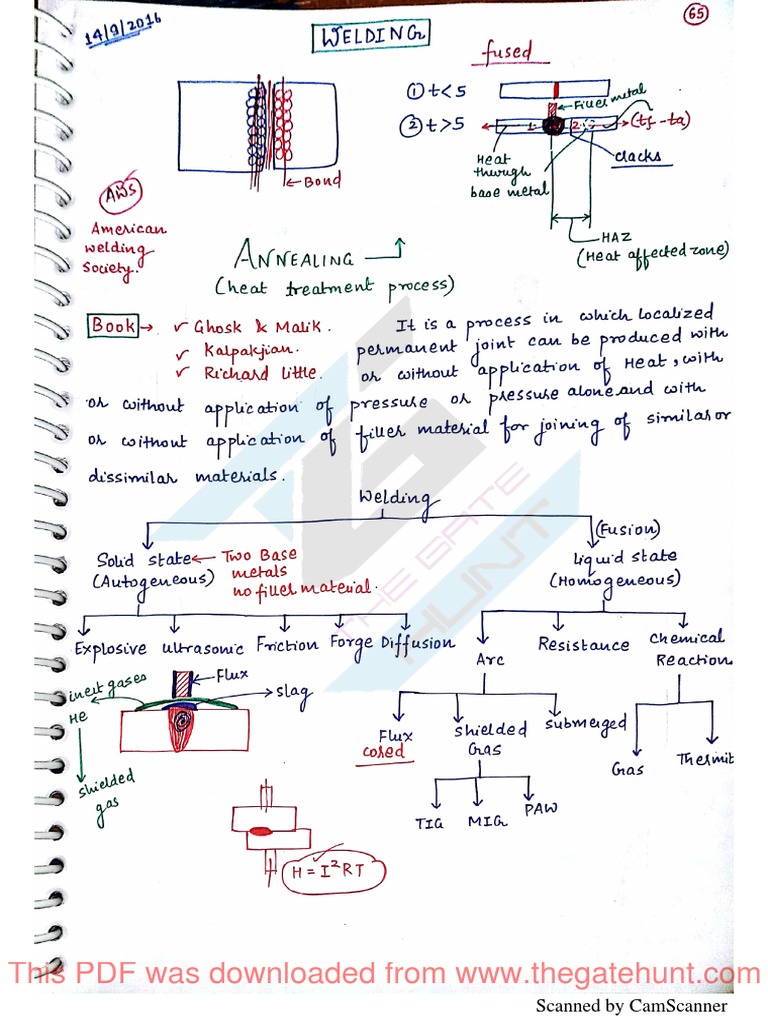 65
14/9/2016
WELDING
fused
① t<5
Filler metal
② t>5
1
2
(tf-ta)
cracks
Heat
through
base metal
Bond
AWS
American
welding
Society.
HAZ
(Heat affected zone)
ANNEALING
(heat treatment process)
Book → ✓ Ghosk & Malik.
✓ Kalpakjian.
✓ Richard Little.
It is a process in which localized
permanent joint can be produced with
or without application of Heat, with
or without application of pressure or pressure alone and with
or without application of filler material for joining of similar or
dissimilar materials.
Welding
Solid state ← Two Base
(Autogeneous) metals
no filler material.
(Fusion)
Liquid state
(Homogeneous)
Explosive ultrasonic Friction Forge Diffusion
Arc Resistance Chemical
Reaction
inert gases
Flux
slag
He
shielded
gas
Flux
cored
Shielded
Gas
submerged
Gas
Thermit
TIG MIG PAW
H = I²RT
THE GATE
HUNT
This PDF was downloaded from www.thegatehunt.com
Scanned by CamScanner